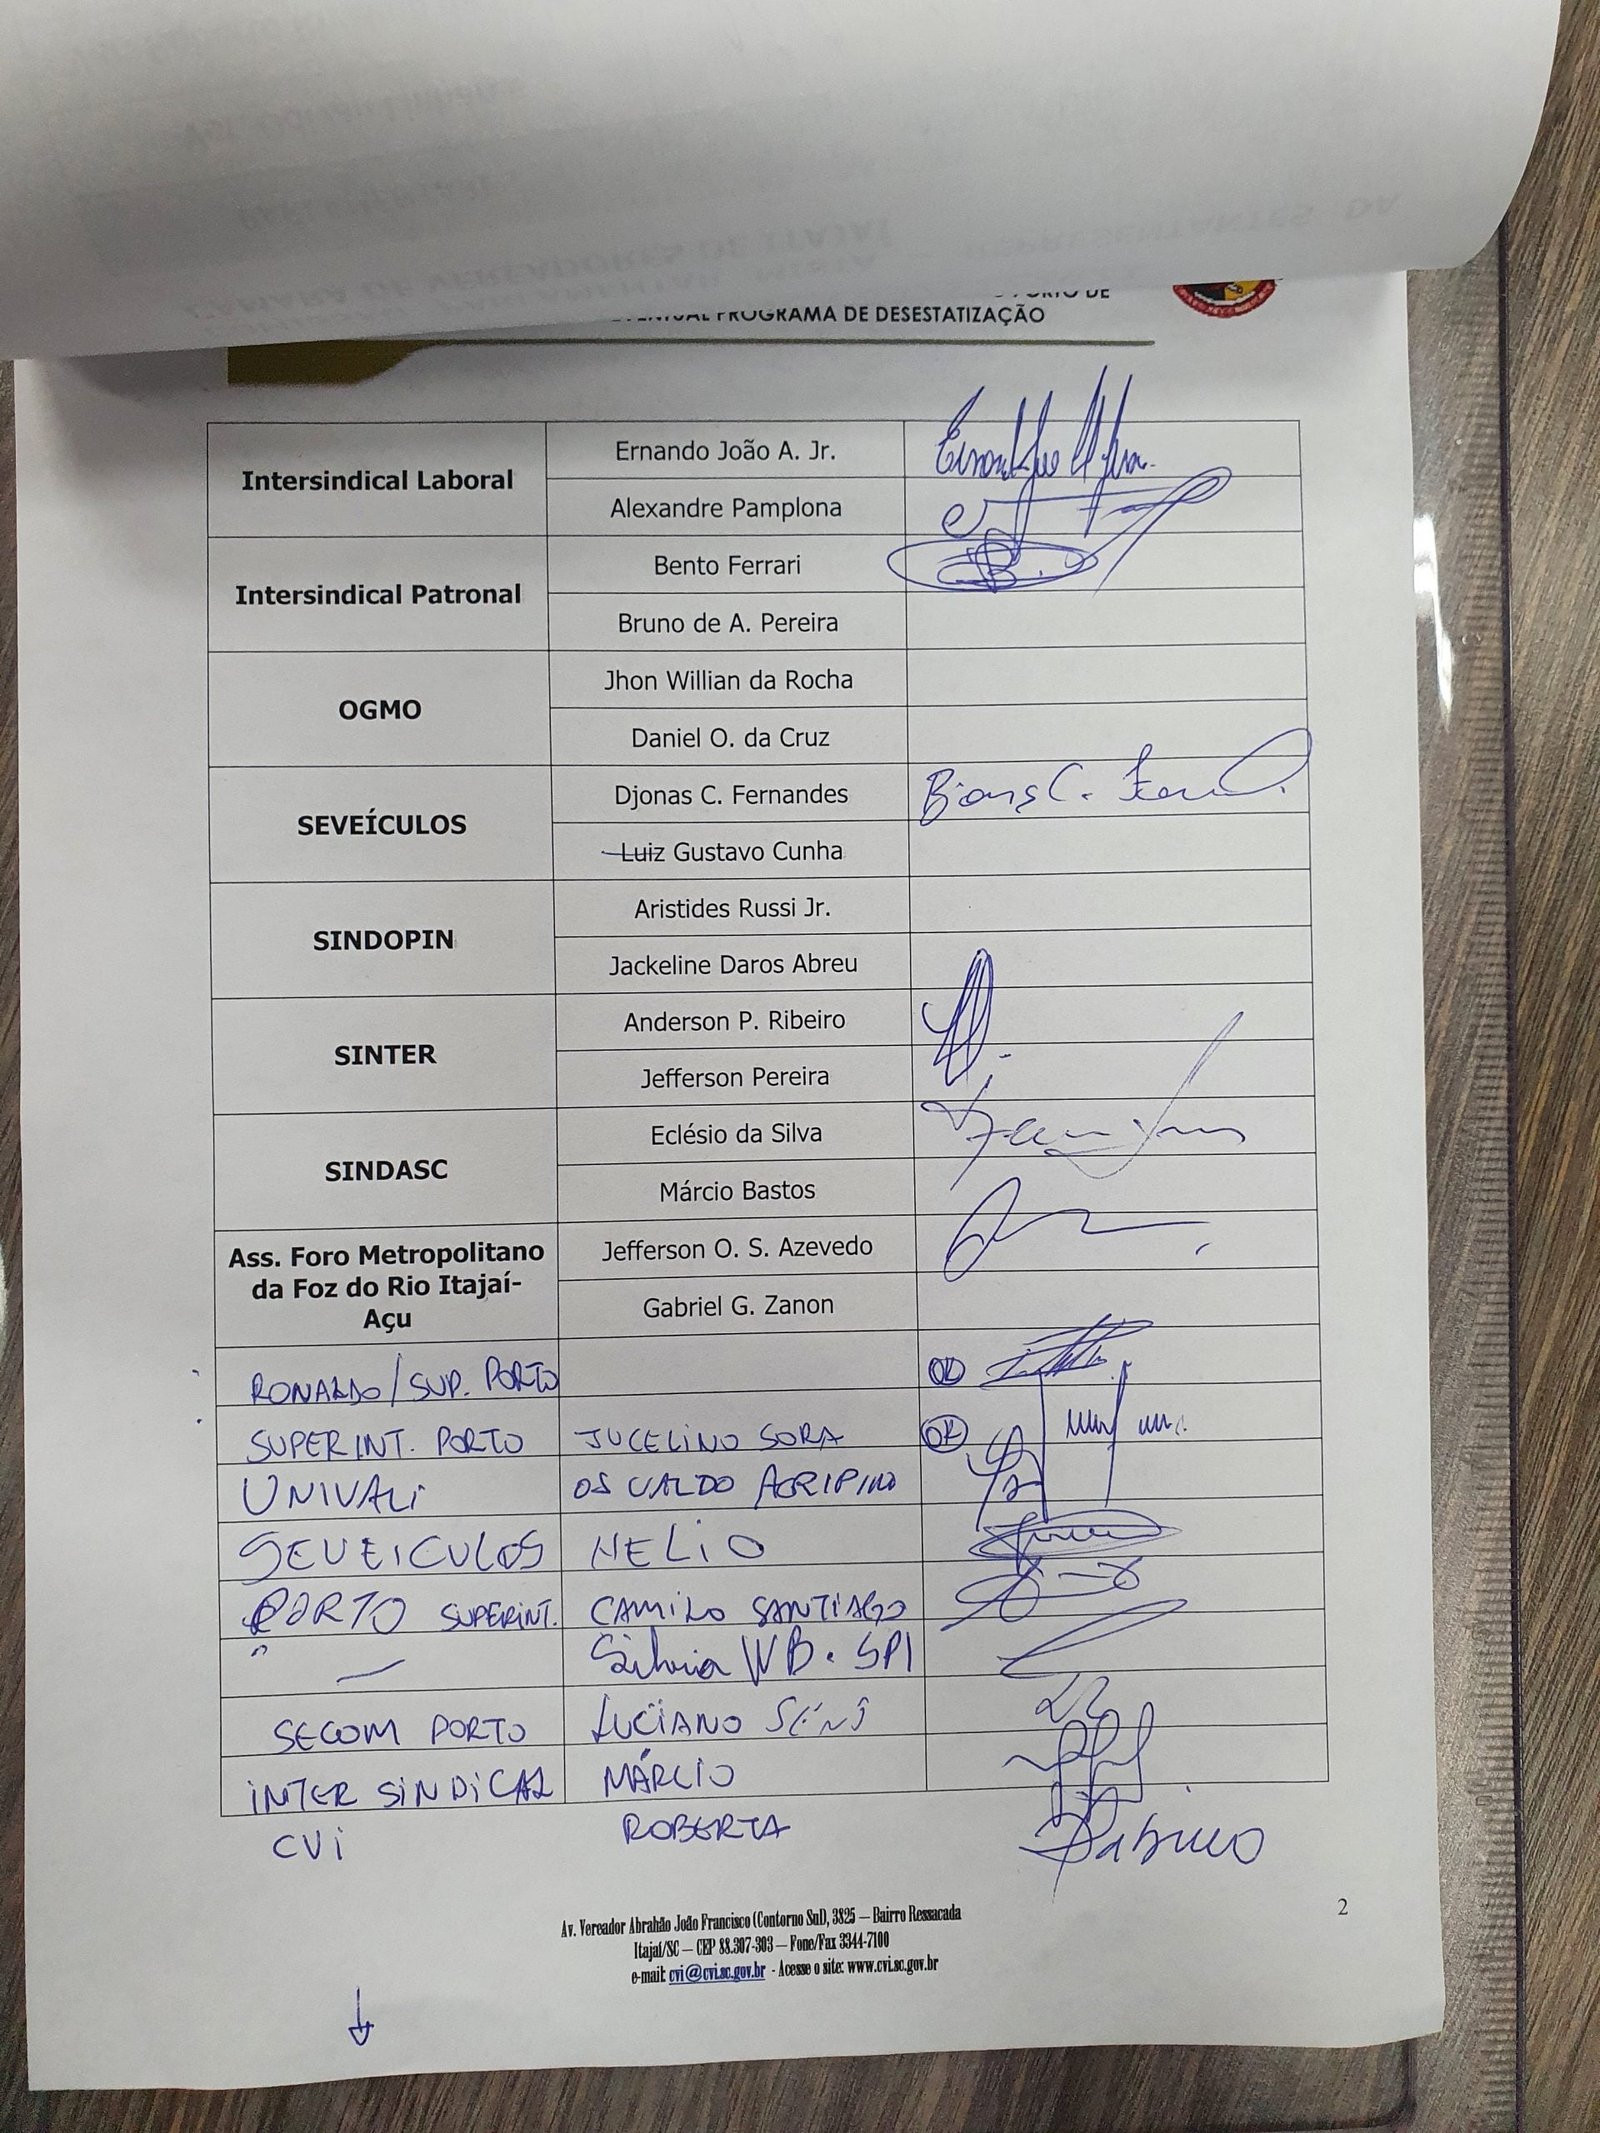 PORTO DE
PROGRAMA DE DESESTATIZAÇÃO
Intersindical Laboral
Ernando João A. Jr.
Alexandre Pamplona
Intersindical Patronal
Bento Ferrari
Bruno de A. Pereira
OGMO
Jhon Willian da Rocha
Daniel O. da Cruz
SEVEÍCULOS
Djonas C. Fernandes
Luiz Gustavo Cunha
SINDOPIN
Aristides Russi Jr.
Jackeline Daros Abreu
SINTER
Anderson P. Ribeiro
Jefferson Pereira
SINDASC
Eclésio da Silva
Márcio Bastos
Ass. Foro Metropolitano
da Foz do Rio Itajaí-
Açu
Jefferson O. S. Azevedo
Gabriel G. Zanon
RONALDO/SUP. PORTO
SUPERINT. PORTO JUCELINO SORA OK
UNIVALI OSVALDO AGRIPINO
SEVEICULOS HELIO
PORTO SUPERINT. CAMILO SANTIAGO
" — Silvia WB. SPI
SECOM PORTO LUCIANO
INTER SINDICAL MÁRCIO
CVI ROBERTA
Av. Vereador Abrahão João Francisco (Contorno Sul), 3825 – Bairro Ressacada
Itajaí/SC – CEP 88.307-303 – Fone/Fax 3344-7100
e-mail: cvi@cvi.sc.gov.br - Acesse o site: www.cvi.sc.gov.br
2